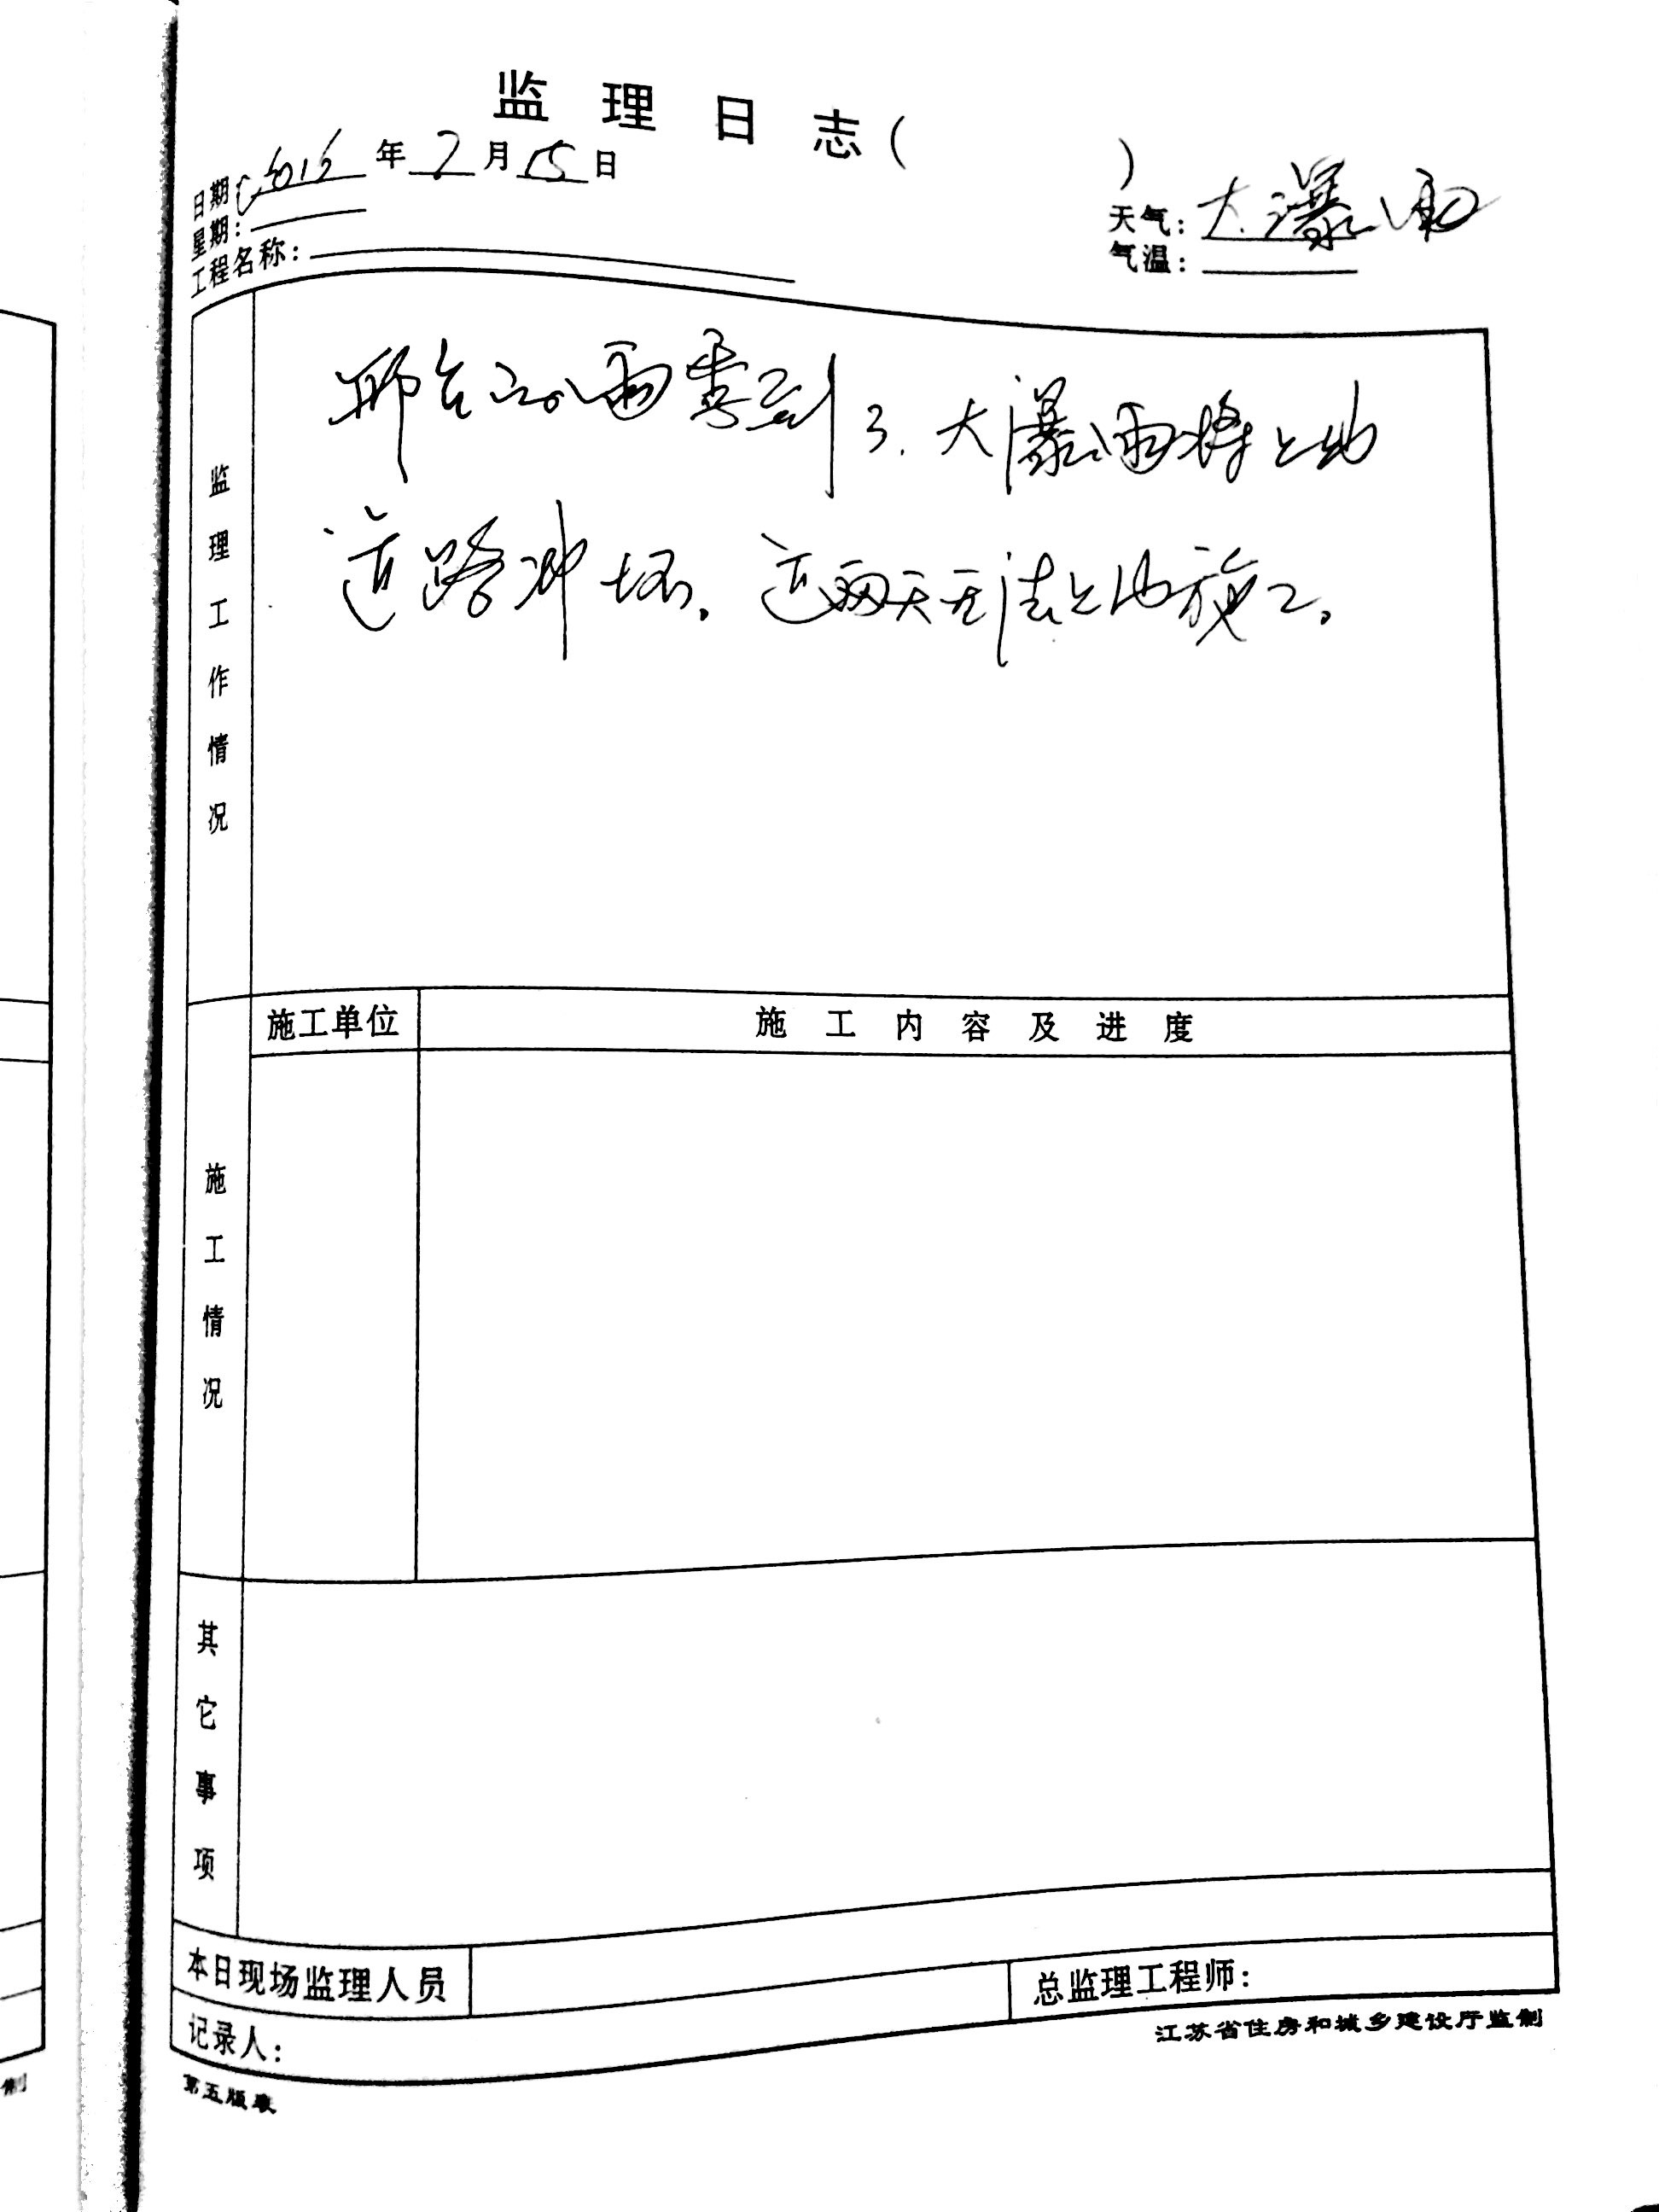 监理日志( )
日期:2016年7月15日
星期:
天气:大瀑雨
工程名称:
气温:
邢台的雨季到了.大瀑雨将上山
道路冲坏。这两天无法上山施工。
监理工作情况
施工单位 施工内容及进度
施工情况
其它事项
本日现场监理人员 总监理工程师:
记录人:
江苏省住房和城乡建设厅监制
第五版表
制